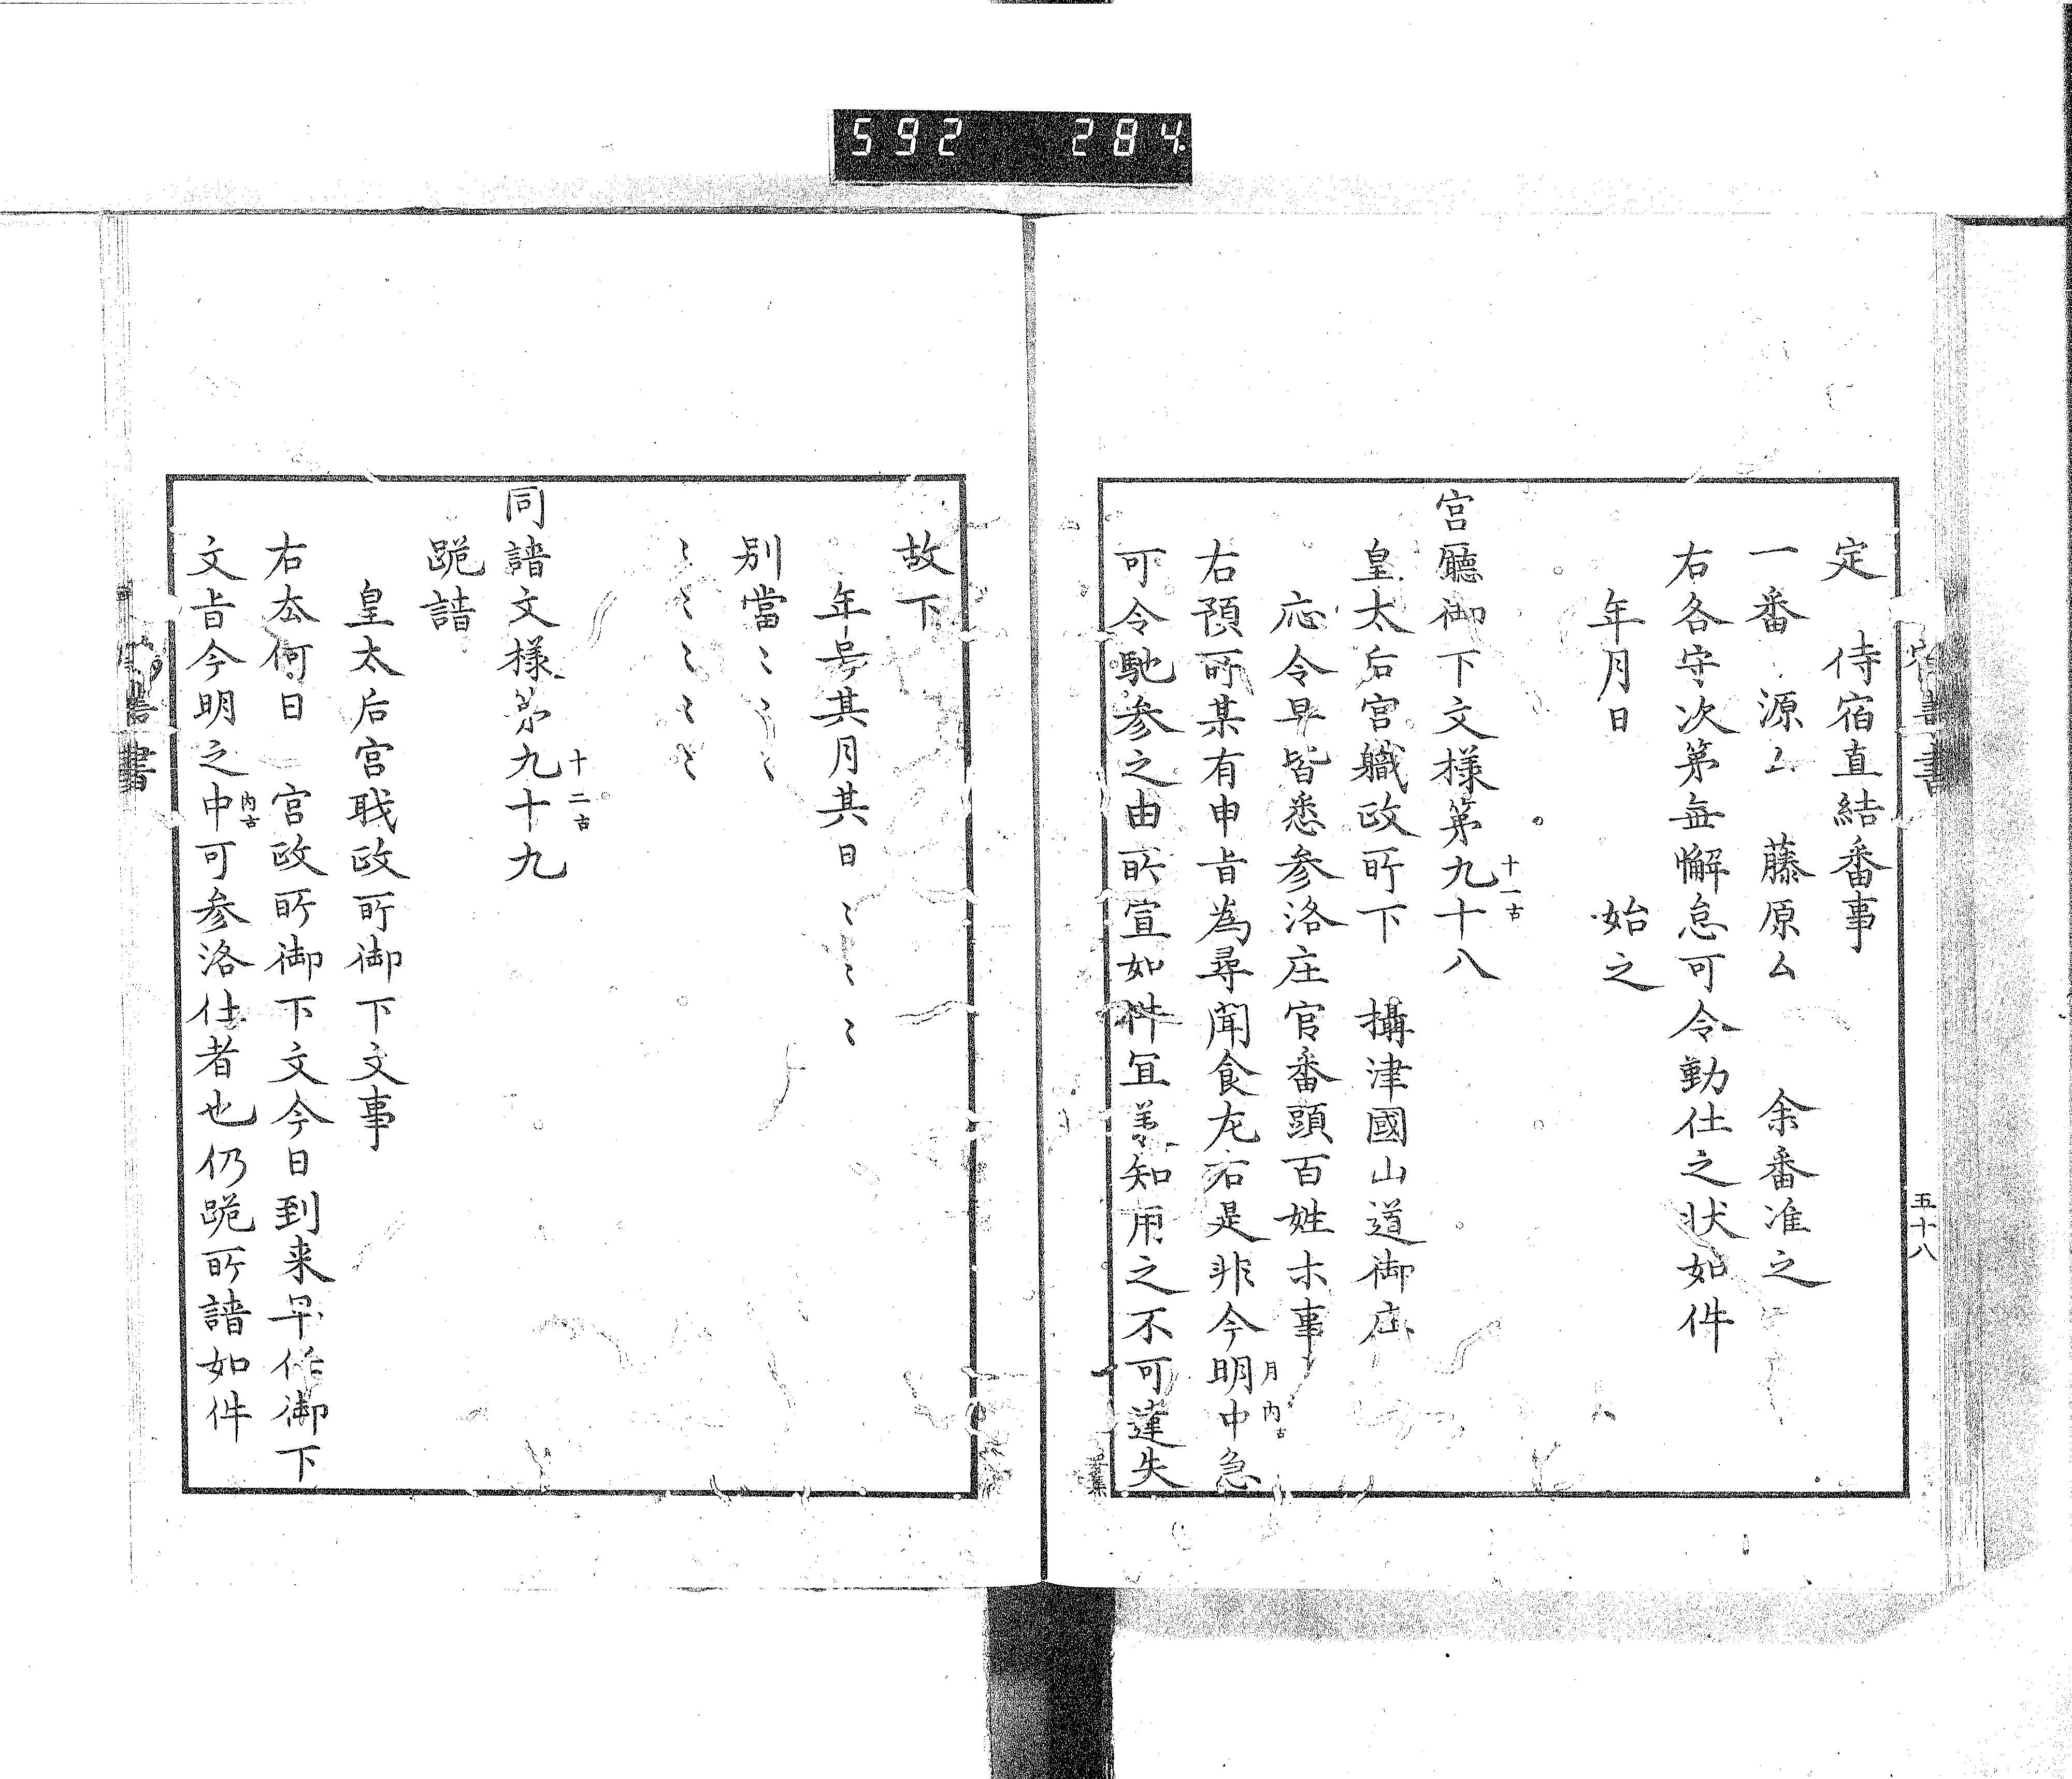 592 284
定　侍宿直結番事
一番　源ム　藤原ム　余番准之
右各守次第無懈怠可令勤仕之状如件
年月日　始之
宮廳御下文様第九十八
十一古
皇太后宮職政所下　攝津國山道御庄
応令早皆悉参洛庄官番頭百姓木事
右預所某有申旨為尋聞食左右是非今明中急
月内古
可令馳参之由所宣如件宜羕知用之不可違失
五十八
故下
年号其月其日ミミミ
別當ミミミ
ミミミミミ
同請文様第九十九
十二古
跪請
皇太后宮職政所御下文事
右去何日　宮政所御下文今日到来早任御下
文旨今明之中可参洛仕者也仍跪所請如件
内古